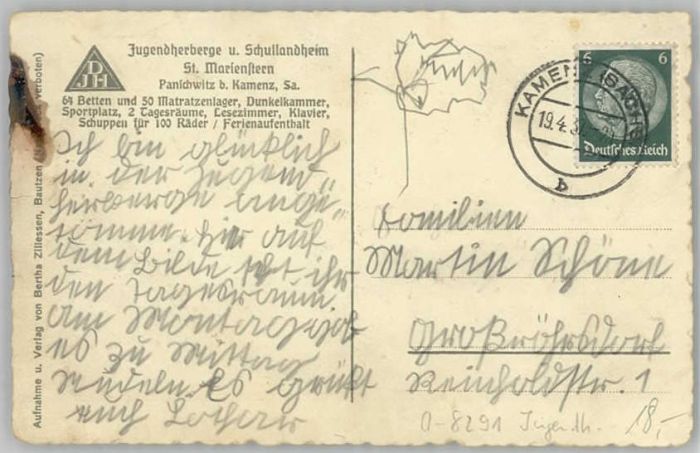 DJH
Jugendherberge u. Schullandheim
St. Marienstern
Panschwitz b. Kamenz, Sa.
64 Betten und 50 Matratzenlager, Dunkelkammer,
Sportplatz, 2 Tagesräume, Lesezimmer, Klavier,
Schuppen für 100 Räder / Ferienaufenthalt
Ich bin glücklich
in der Jugend„
herberge ange„
komme. Hier auf
dem Bilde seht ihr
den Tagesraum.
Am Montag gab
es zu Mittag
Nudeln. Es grüßt
euch Lothar
Aufnahme u. Verlag von Bertha Zillessen, Bautzen verboten)
6 6
Deutsches Reich
KAMENZ (SACHS)
19.4.3
b
Familien
Martin Schöne
Großröhrsdorf
Reinholdstr. 1
O-8291 Jugendh. 18,-